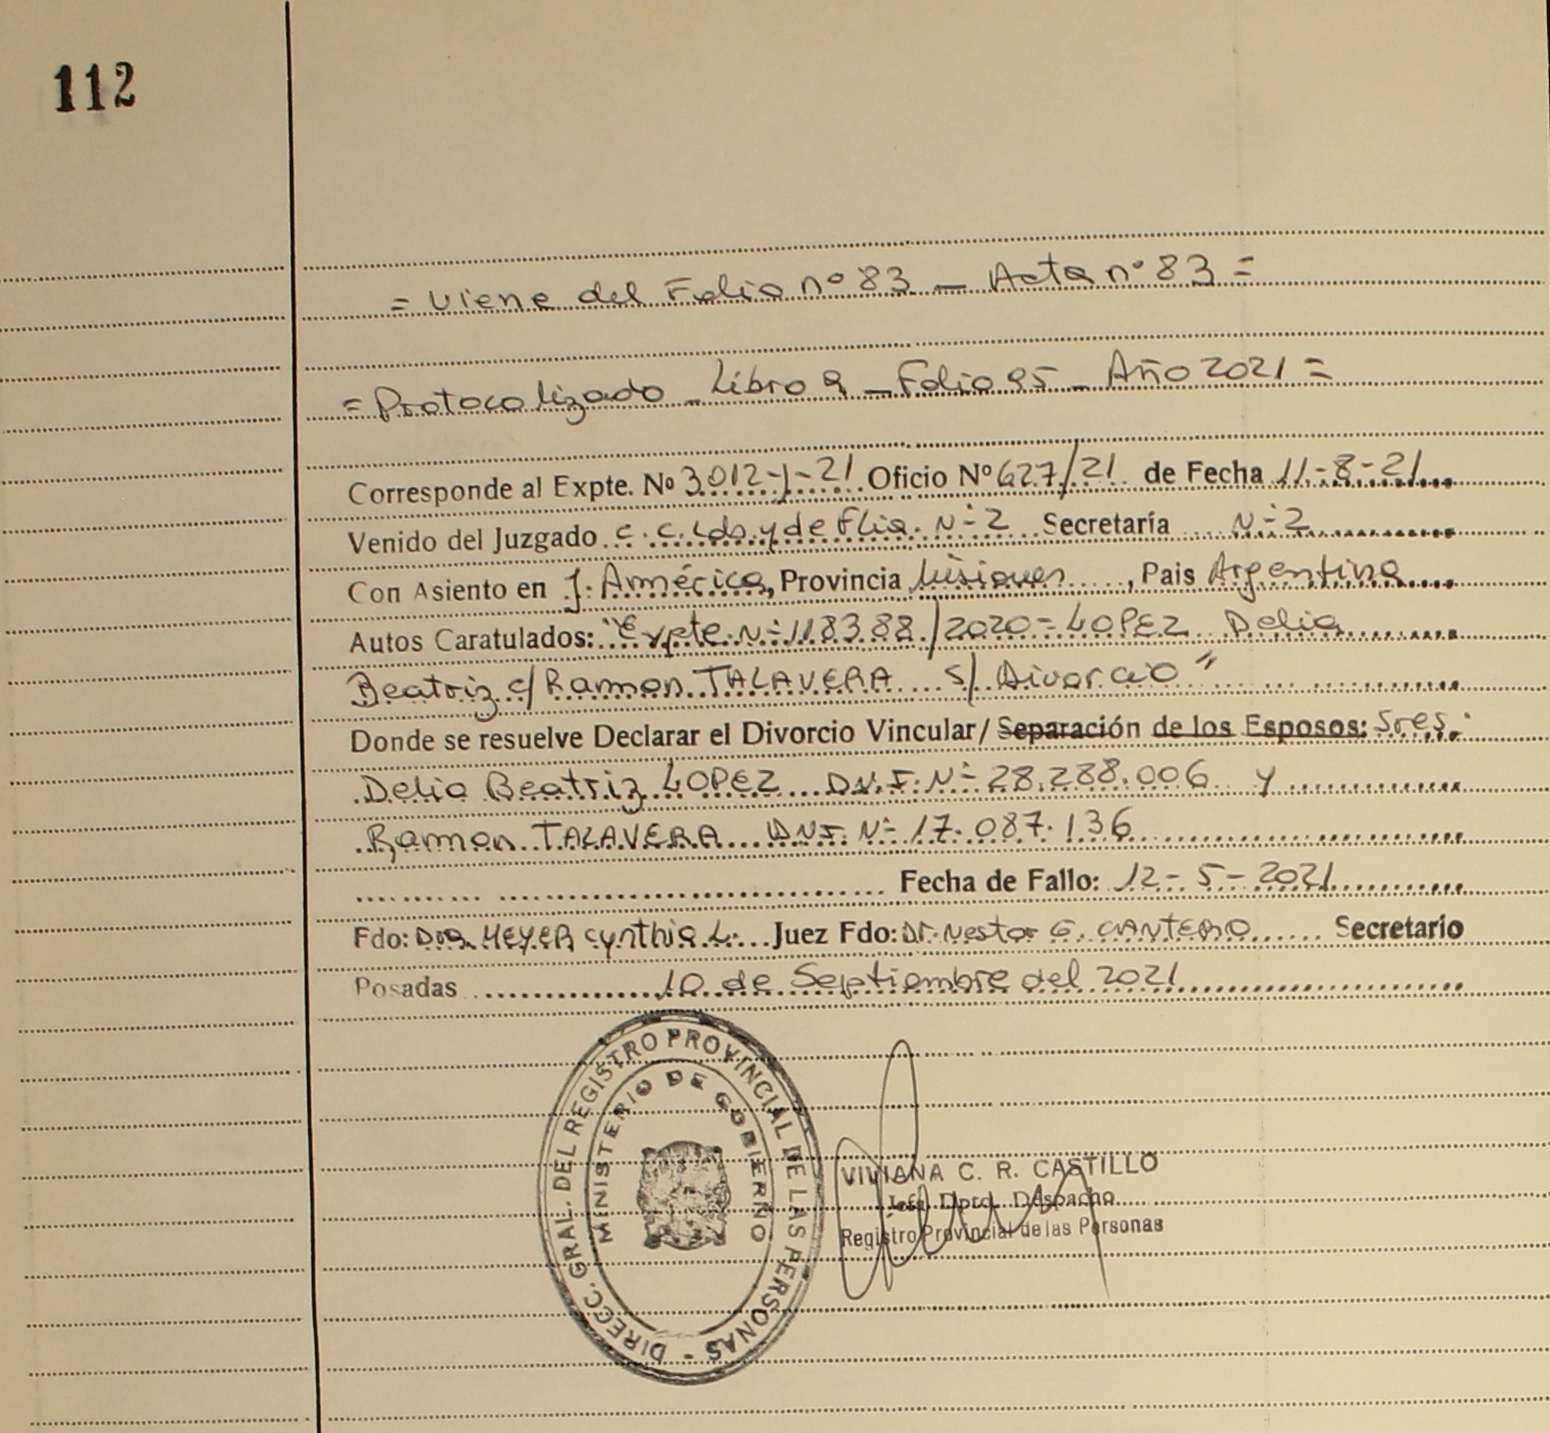 112
= Viene del Folio nº 83 _ Acta nº 83 =
= Protocolizado _ Libro 9 _ Folio 95 _ Año 2021 =
Corresponde al Expte. Nº 3012-y-21 Oficio Nº 627/21 de Fecha 11-8-21
Venido del Juzgado C. C. Lab. y de Flia. Nº 2 Secretaría Nº 2
Con Asiento en J. América, Provincia Misiones, Pais Argentina
Autos Caratulados: "Expte. Nº 118388/2020 - LOPEZ Delia
Beatriz c/ Ramon TALAVERA s/ Divorcio"
Donde se resuelve Declarar el Divorcio Vincular/ Separación de los Esposos: Sres.
Delia Beatriz LOPEZ DNI Nº 28.288.006 y
Ramon TALAVERA DNI Nº 17.087.136
Fecha de Fallo: 12-5-2021
Fdo: Dra. MEYER Cynthia L. Juez Fdo: Dr. Nestor G. CANTERO Secretario
Posadas 10 de Septiembre del 2021
DIRECC. GRAL. DEL REGISTRO PROVINCIAL DE LAS PERSONAS -
MINISTERIO DE GOBIERNO
VIVIANA C. R. CASTILLO
Jefe Dpto. Despacho
Registro Provincial de las Personas